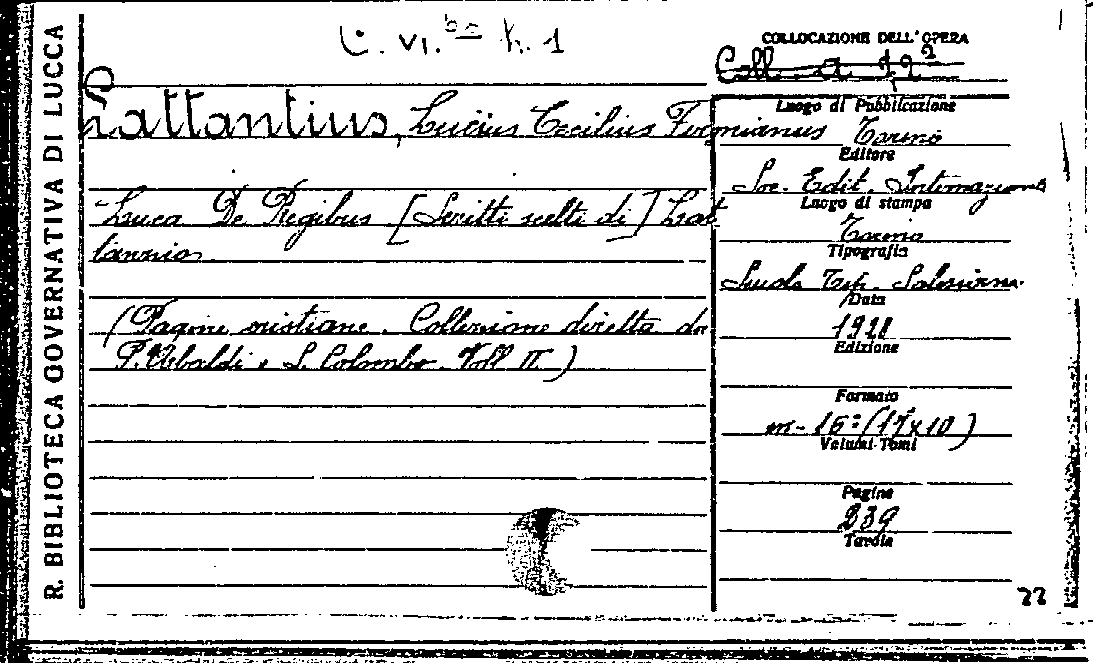 R. BIBLIOTECA GOVERNATIVA DI LUCCA
C. VI. bis h. 1
COLLOCAZIONE DELL'OPERA
Coll. A 79 2
Lattantius, Lucius Cecilius Firmianus
Luca De Regibus [Scritti scelti di] Lat
tanzio.
(Pagine cristiane. Collezione diretta da
P. Ubaldi e S. Colombo. Voll II.)
Luogo di Pubblicazione
Torino
Editore
Soc. Edit. Internazionale
Luogo di stampa
Torino
Tipografia
Scuola Tip. Salesiana.
Data
1928
Edizione
Formato
in-16º (17x10)
Volumi-Tomi
Pagine
239
Tavole
22